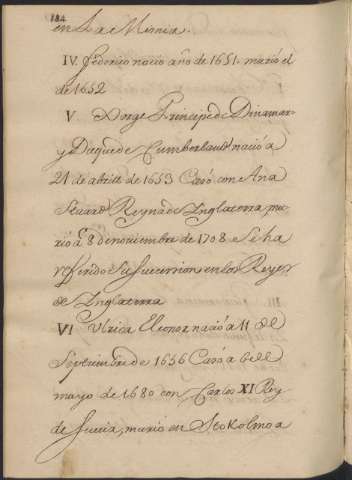 184
en Saxonia.
IV. Federico nacio año de 1651. murió el
de 1652
V Jorge Principe de Dinamar-
y Duque de Cumberland nació a
21 de abrill de 1653 Casó con Ana
Stuard Reyna de Inglaterra, mu-
rió a 8 de noviembre de 1708 e Se ha
referido su succession en los Reyes
de Inglaterra
VI Ulrica Eleonor nació a 11 de
Septiembre de 1656 Casó a 6 de
mayo de 1680 con Carlos XI Rey
de Suecia, murió en Stokolmo a